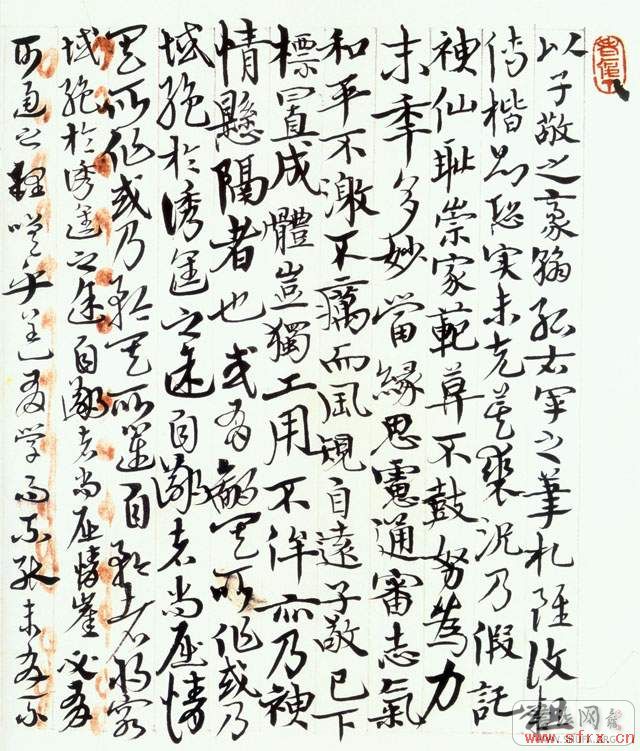 以子敬之豪翰紹右军之筆札雖復粗
傳楷則恐实未克箕裘況乃假託
神仙耻崇家範莫不鼓努為力
末年多妙當緣思慮通審志氣
和平不激不厲而風規自遠子敬已下
標置成體豈獨工用不侔亦乃神
情懸隔者也或有鄙其所作或乃
域絕於誘進之途自鄙者尚屈情
其所作或乃矜其所運自矜者將窮
域絕於誘進之途自鄙者尚屈情崖必有
可通之理嗟乎盖有学而不能未有不
www.sfrx.cn